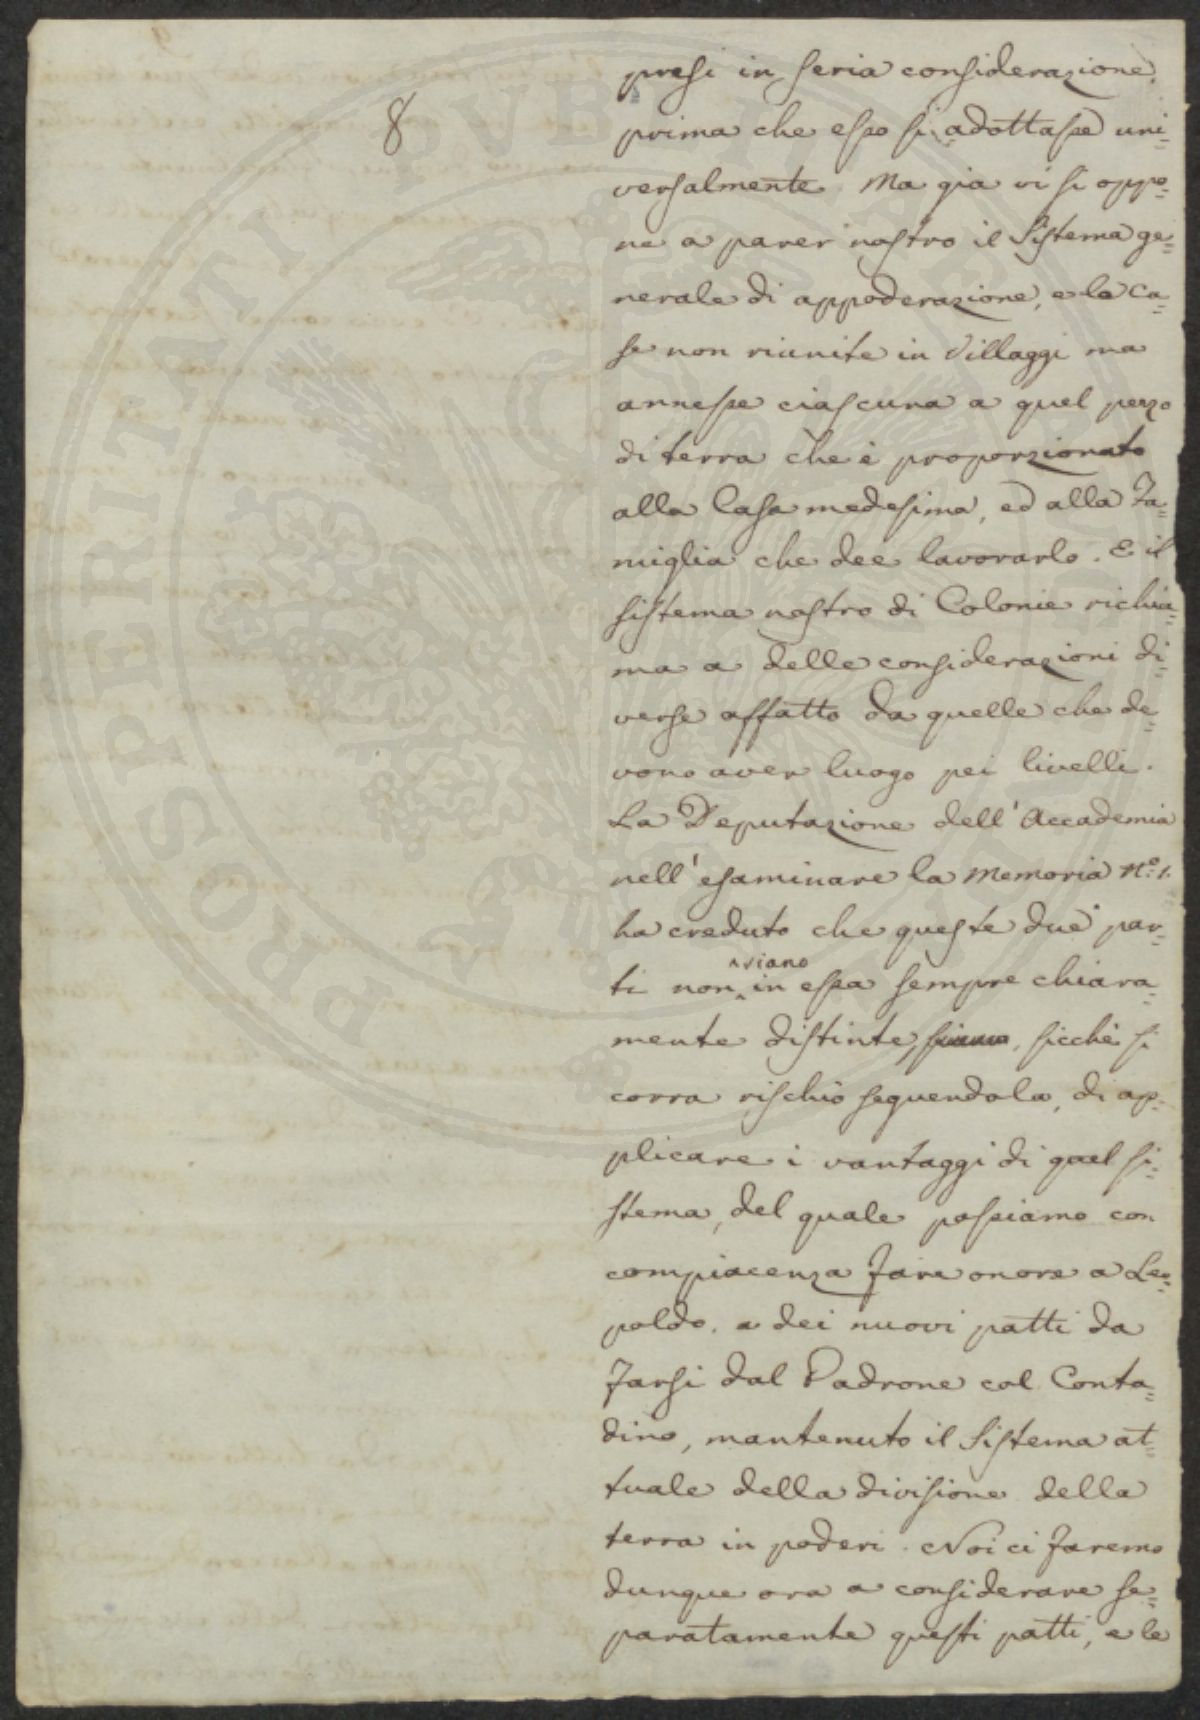 8
presi in seria considerazione,
prima che esso si adottasse uni=
versalmente. Ma gia vi si oppo=
ne a parer nostro il Sistema ge=
nerale di appoderazione, e le Ca=
se non riunite in Villaggi ma
annesse ciascuna a quel pezzo
di terra che è proporzionato
alla Casa medesima, ed alla Fa=
miglia che dee lavorarlo. E il
sistema nostro di Colonie richia=
ma a delle considerazioni di=
verse affatto da quelle che de=
vono aver luogo pei livelli.
La Deputazione dell'Accademia
nell'esaminare la Memoria N.° 1.
ha creduto che queste due par=
siano
ti non in essa sempre chiara=
mente distinte, siano, sicchè si
corra rischio seguendola, di ap=
plicare i vantaggi di quel si=
stema, del quale possiamo con
compiacenza fare onore a Leo=
poldo, a dei nuovi patti da
farsi dal Padrone col Conta=
dino, mantenuto il Sistema at=
tuale della divisione della
terra in poderi. Noi ci faremo
dunque ora a considerare se=
paratamente questi patti, e le
PROSPERITATI PVBLICAE